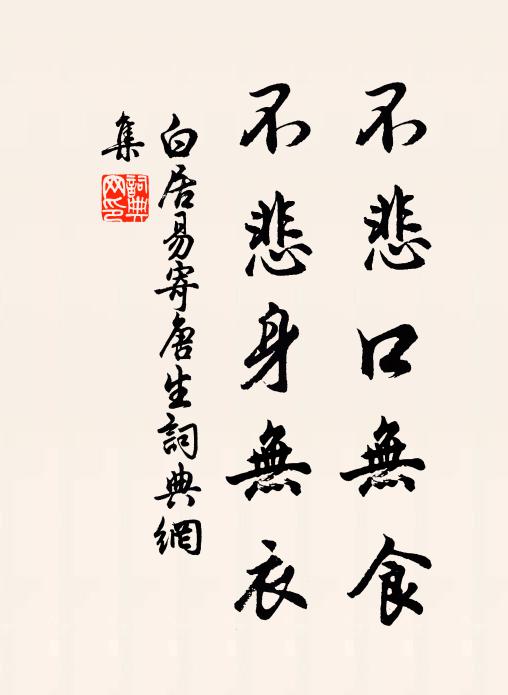 不悲口無食
不悲身無衣
白居易寄唐生詞典網
集
詞典
网印